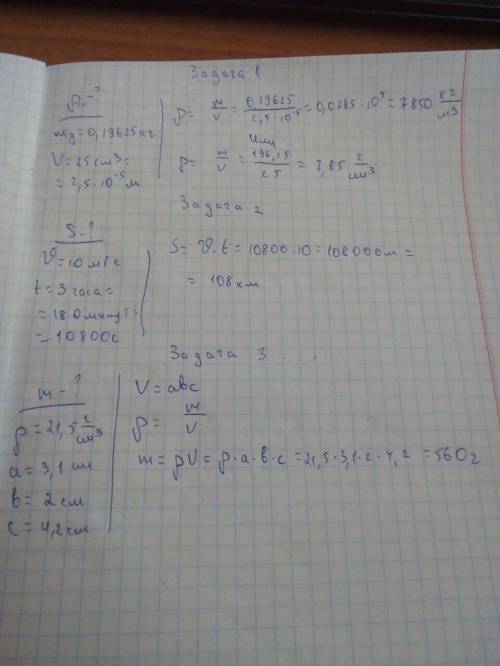 Задача 1
ρ - ?
mд = 0,19625 кг
V = 25 см³ =
= 2,5·10⁻⁵ м
ρ = m/V = 0,19625/2,5·10⁻⁵ = 0,0785·10⁵ = 7850 кг/м³
или
ρ = m/V = 196,25/25 = 7,85 г/см³
Задача 2
S - ?
V = 10 м/с
t = 3 часа =
= 180 минут =
= 10800 с
S = V·t = 10800·10 = 108000 м =
= 108 км
Задача 3
m - ?
ρ = 21,5 г/см³
a = 3,1 см
в = 2 см
c = 4,2 см
V = aвc
ρ = m/V
m = ρV = ρ·a·в·c = 21,5·3,1·2·4,2 = 560 г